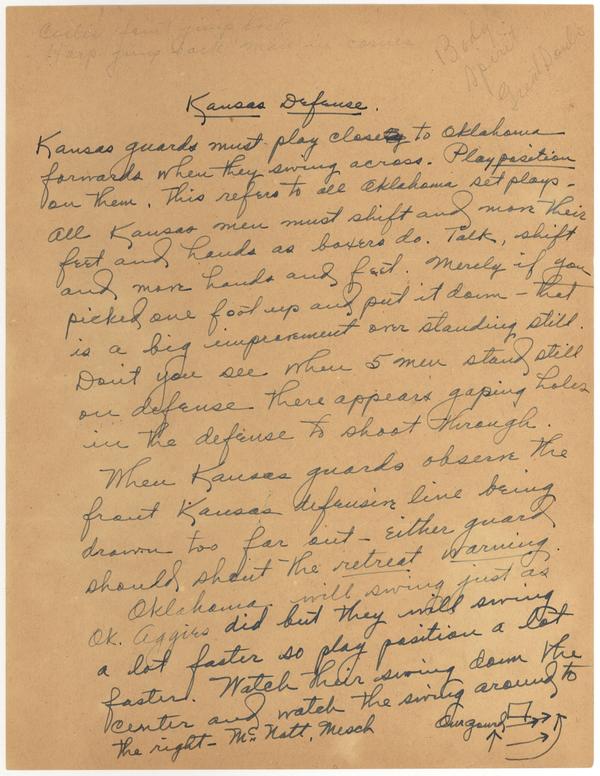 jump back
Harp jump back man in corner
Body
Spirit
Kansas Defense.
Kansas guards must play close to Oklahoma
forwards when they swing across. Play position
on them. This refers to all Oklahoma set plays-
All Kansas men must shift and move their
feet and hands as boxers do. Talk, shift
and move hands and feet. Merely if you
picked one foot up and put it down - that
is a big improvement over standing still.
Don't you see when 5 men stand still
on defense there appears gaping holes
in the defense to shoot through.
When Kansas guards observe the
front Kansas defensive line being
drawn too far out - either guard
should shout the retreat warning.
Oklahoma will swing just as
Ok. Aggies did but they will swing
a lot faster so play position a lot
faster. Watch their swing down the
center and watch the swing around to
the right - McNatt, Mesch
Our guard